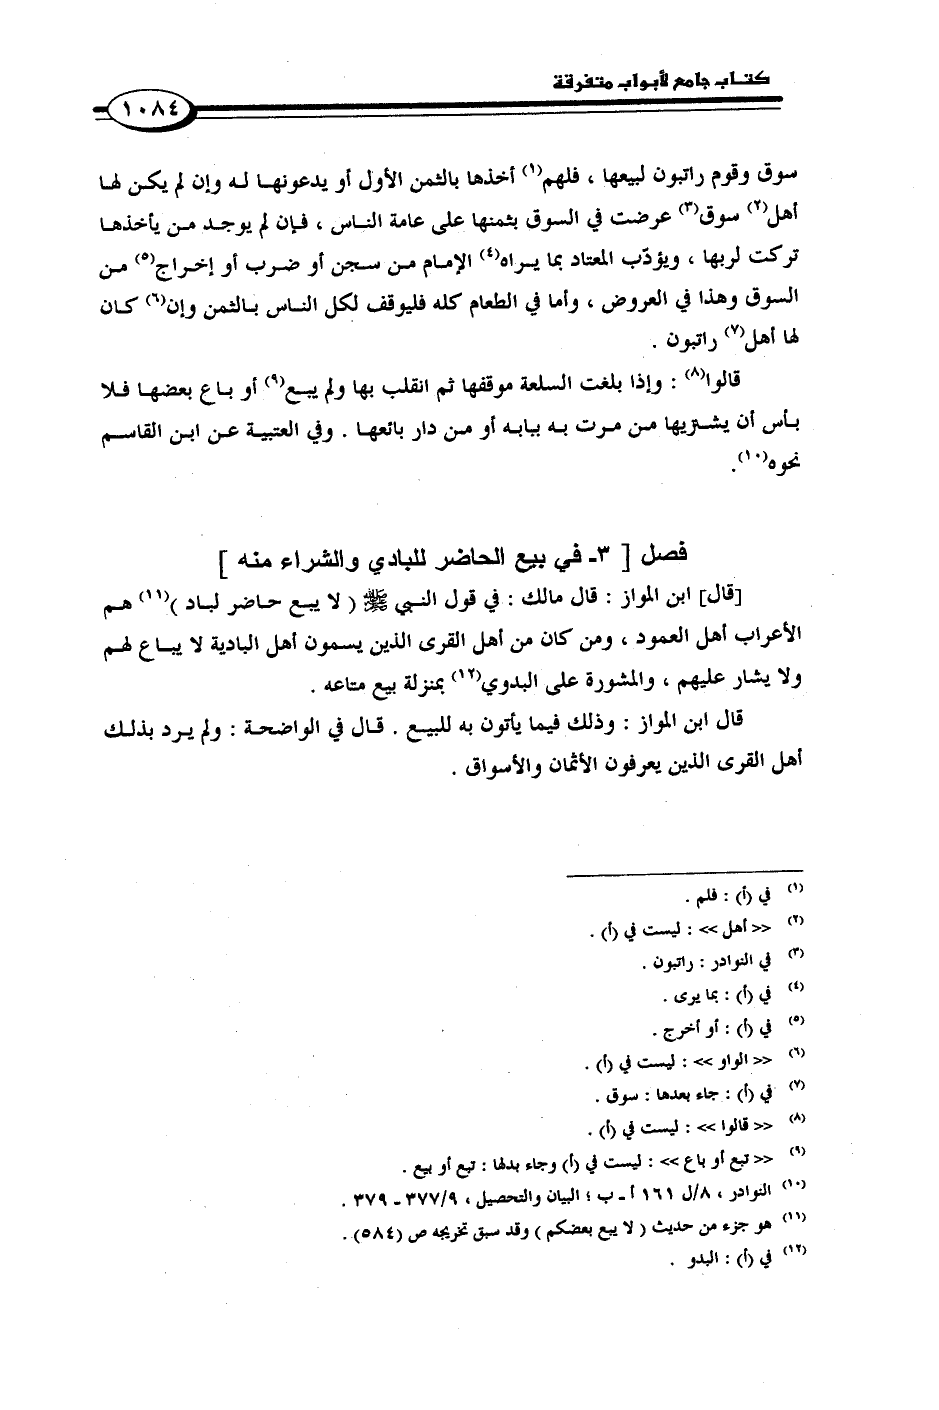 كتاب جامع لأبواب متفرقة
١٠٨٤
سوق وقوم راتبون لبيعها ، فلهم(١) أخذها بالثمن الأول أو يدعونها له وإن لم يكن لها
أهل(٢) سوق(٣) عرضت في السوق بثمنها على عامة الناس ، فإن لم يوجد من يأخذها
تركت لربها ، ويؤدّب المعتاد بما يراه(٤) الإمام من سجن أو ضرب أو إخراج(٥) من
السوق وهذا في العروض ، وأما في الطعام كله فليوقف لكل الناس بالثمن وإن(٦) كان
لها أهل(٧) راتبون .
قالوا(٨) : وإذا بلغت السلعة موقفها ثم انقلب بها ولم يبع(٩) أو باع بعضها فلا
بأس أن يشتريها من مرت به ببابه أو من دار بائعها . وفي العتبية عن ابن القاسم
نحوه(١٠).
فصل [ ٣ـ في بيع الحاضر للبادي والشراء منه ]
[قال] ابن المواز : قال مالك : في قول النبي ﷺ ( لا يبع حاضر لباد )(١١) هم
الأعراب أهل العمود ، ومن كان من أهل القرى الذين يسمون أهل البادية لا يباع لهم
ولا يشار عليهم ، والمشورة على البدوي(١٢) بمنزلة بيع متاعه .
قال ابن المواز : وذلك فيما يأتون به للبيع . قال في الواضحة : ولم يرد بذلك
أهل القرى الذين يعرفون الأثمان والأسواق .
(١) في (أ) : فلم .
(٢) << أهل >> : ليست في (أ) .
(٣) في النوادر : راتبون .
(٤) في (أ) : بما يرى .
(٥) في (أ) : أو أخرج .
(٦) << الواو >> : ليست في (أ) .
(٧) في (أ) : جاء بعدها : سوق .
(٨) << قالوا >> : ليست في (أ) .
(٩) << تبع أو باع >> : ليست في (أ) وجاء بدلها : تبع أو بيع .
(١٠) النوادر ، ٨/ل ١٦١ أ ـ ب ؛ البيان والتحصيل ، ٣٧٧/٩ ـ ٣٧٩ .
(١١) هو جزء من حديث ( لا يبع بعضكم ) وقد سبق تخريجه ص (٥٨٤) .
(١٢) في (أ) : البدو .